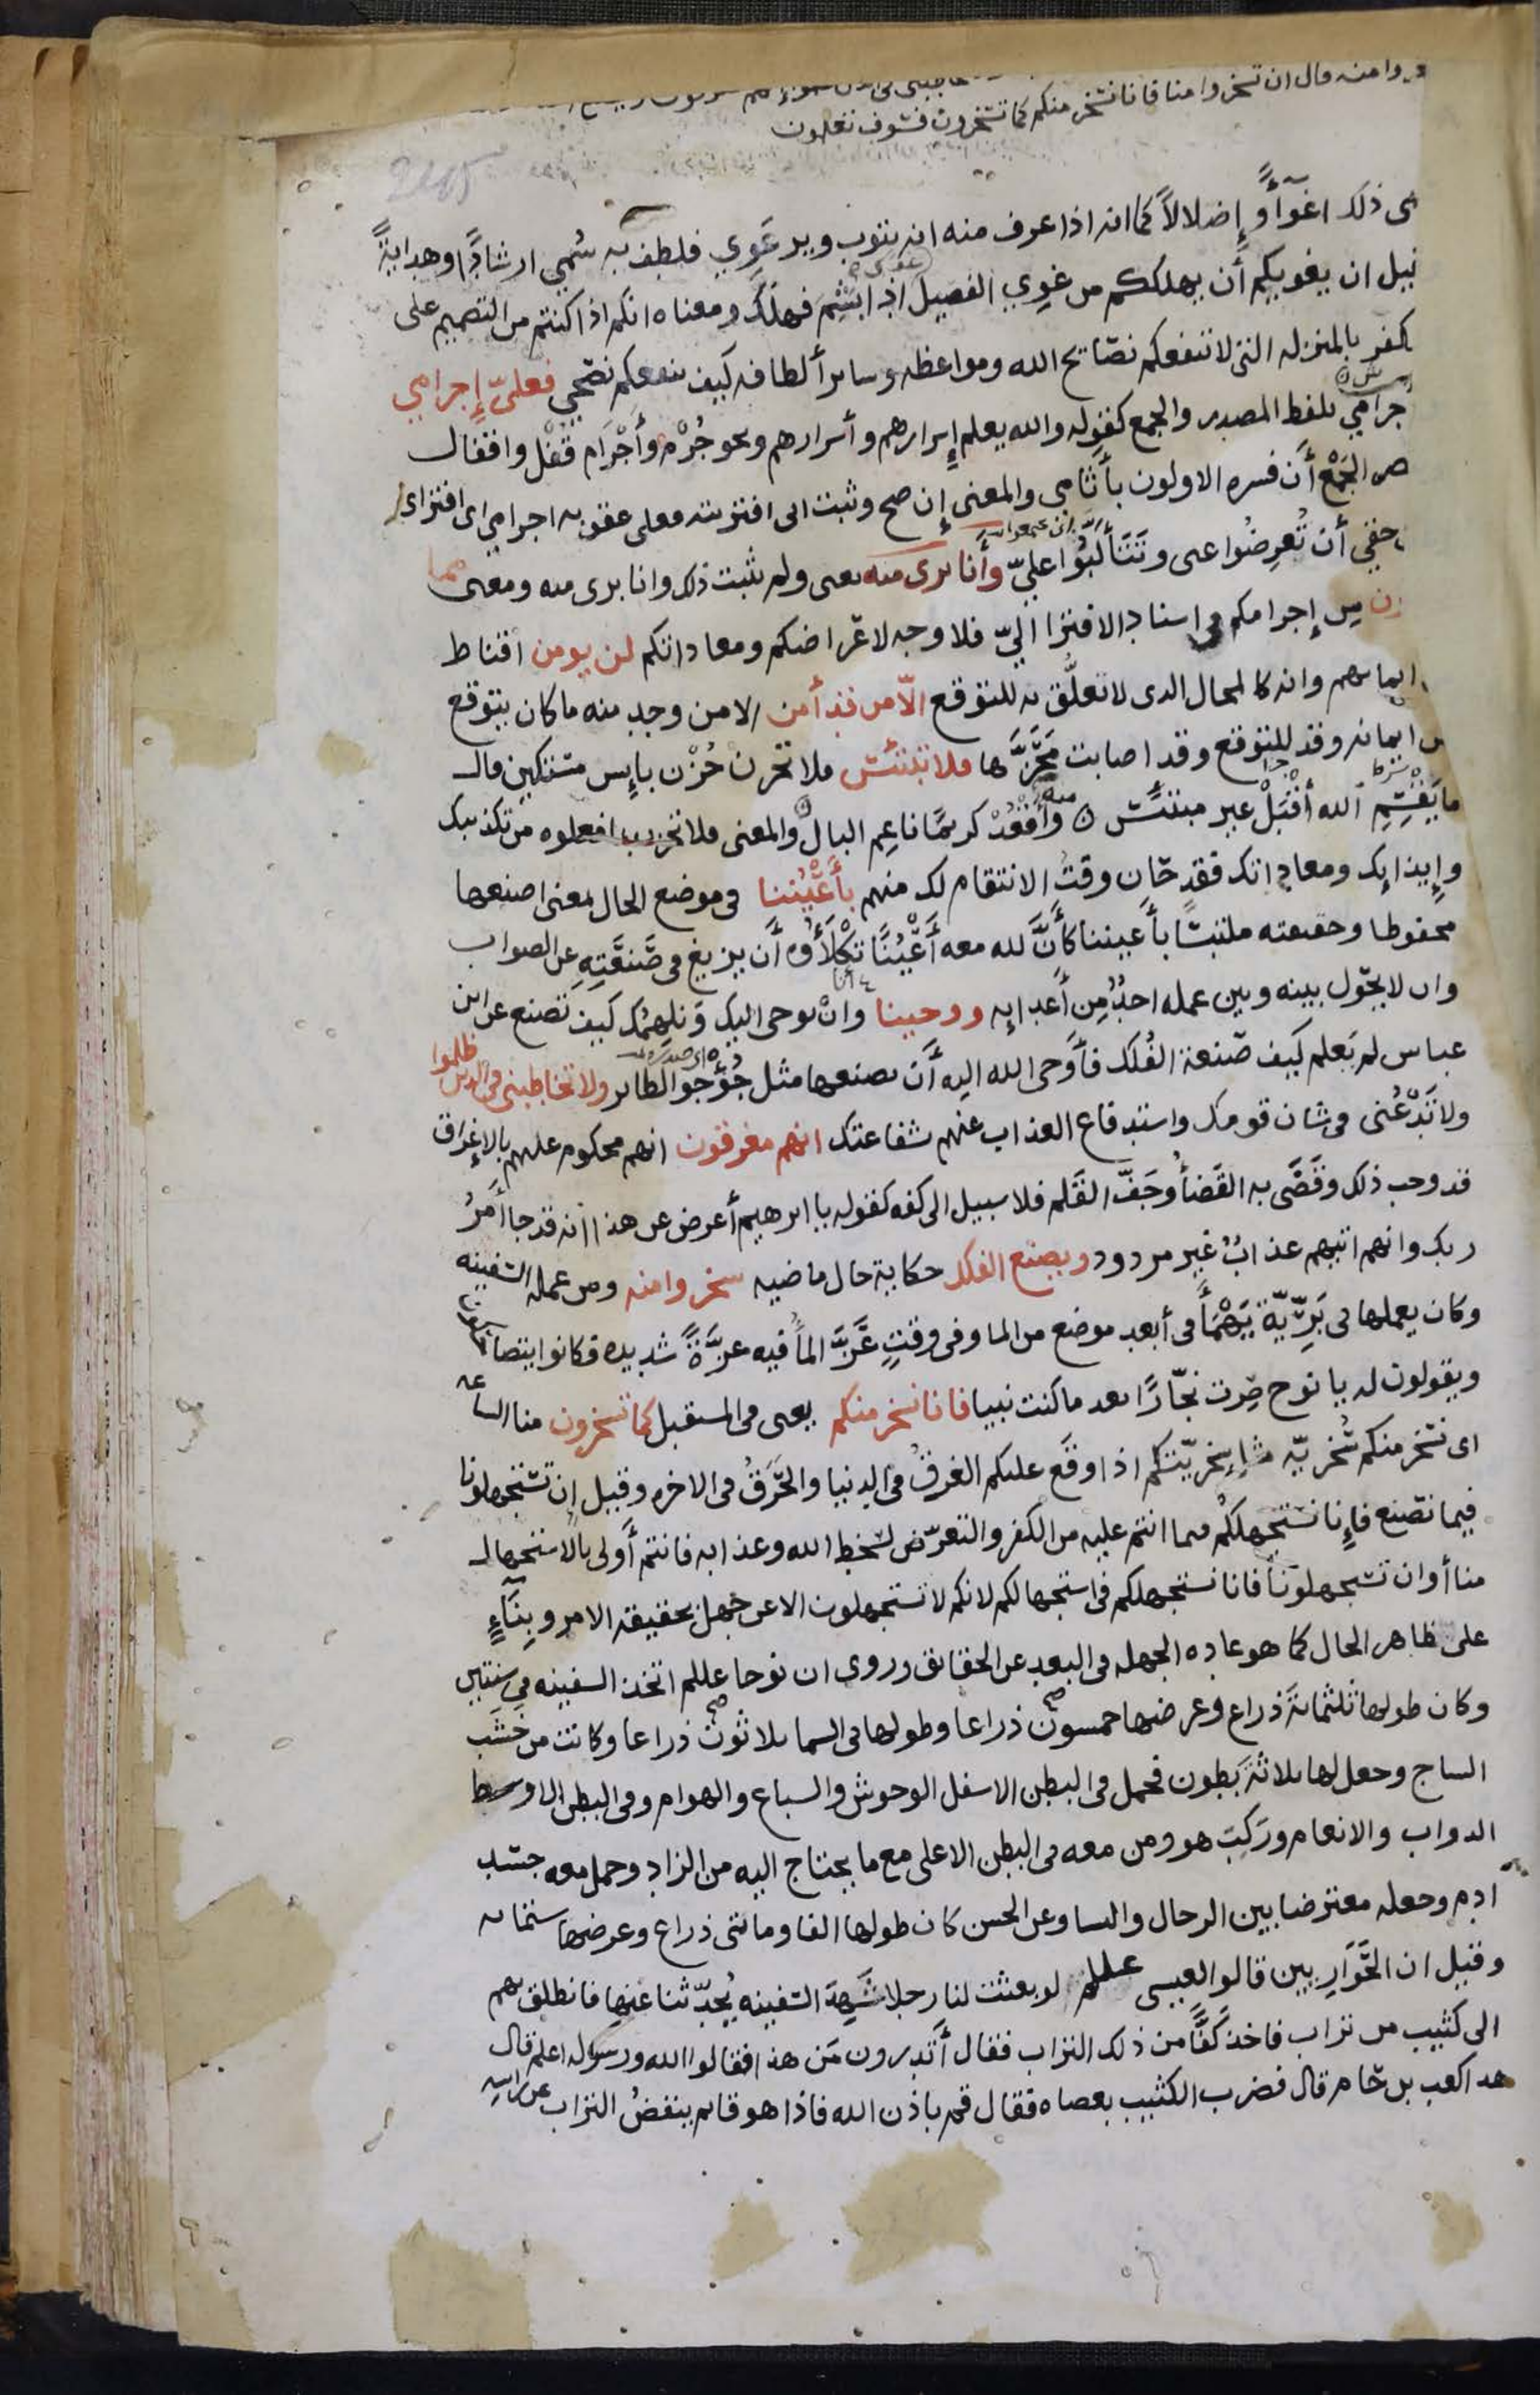 وا منه قال ان تسخروا منا فانا نسخر منكم كما تسخرون فسوف تعلمون
2185
سمى ذلك اغوآءً وإضلالاً كما انه اذا عرف منه انه يتوب ويرعَوِي فلطف به سُمي ارشادًا وهدايةً
قيل ان يغويكم أن يهلككم من غوِي الفصيل اذا بَشِمَ فهلك ومعناه انكم اذا كنتم من التصميم على
الكفر بالمنزله التى لا تنفعكم نصايح الله ومواعظه وساير ألطافه كيف ينفعكم نصحي فعليّ إجرامي
إجرامي بلفظ المصدر والجمع كقوله والله يعلم إسرارهم وأسرارهم ونحو جُرْم وأَجْرَام قُفْل واقفال
الجَمْعَ أن فسره الاولون بآثامي والمعنى إن صح وثبت انى افتريته فعلى عقوبه اجرامي اى افتراى
حقي أن تُعرِضُوا عنى وتَتَألَّبُوا عليّ وأَنا برى منه يعنى ولم يثبت ذلك وانا برى منه ومعنى مما
من إجرامكم فى اسناد الافترا اليّ فلا وجه لاعراضكم ومعاداتكم لن يومن اقناط
ايمانهم وانه كالمحال الدى لا تعلُّق به للتوقع الّا من قد أمن الا من وجد منه ما كان يتوقع
من ايمانه وقد للتوقع وقد اصابت مَحَزَّها فلا تبتئس فلا تحزن حُزْن بايِس مستكين قال
ما يَقْسِمِ الله أقْبَلْ غير مبتئسٍ منه وأَقْعُدْ كريمًا ناعِم البال والمعنى فلا تحزن بما فعلوه من تكذيبك
وإيذايك ومعاداتك فقد حَان وقتُ الانتقام لك منهم بأَعْيُننا فى موضع الحال بمعنى اصنعها
محفوظا وحقيقته ملتبسًا بأعيننا كأَنَّ لله معه أَعْيُنًا تكْلَأُوه أَن يزيغ فى صَنعَتِهِ عن الصواب
وان لا يحُول بينه وبين عمله احدٌ مِن أَعدايه ووحيينا وانا نوحى اليك ونلهمُك كيف تصنع عن ابن
عباس لم يَعلم كيف صَنعة الفُلك فأَوحى الله اليه أَن يصنعها مثل جُؤجؤ الطاير ولا تخاطبنى فى الذين ظلموا
ولا تَدْعُنى فى شان قومك واستدفاع العذاب عنهم بشفاعتك انهم مغرقون انهم محكوم عليهم بالإغراق
قد وجب ذلك وقَضَى به القَضأُ وجَفّ القَلم فلا سبيل الى كفه كقوله يا ابرهيم أعرض عن هذا انه قد جا أَمرُ
ربك وانهم اتيهم عذابٌ غير مردود ويصنع الفلك حكاية حال ماضيه سخروا منه ومن عمله السفينه
وكان يعملها فى بَرِّيّة يَهْمَأَ فى أبعد موضع من الما وفى وقتٍ عَزَّ المأُ فيه عِزَّةً شديده فكانوا يتضاحكون
ويقولون له يا نوح صِرت نجّارًا بعد ما كنت نبيا فانا نسخر منكم يعنى فى المستقبل كما تسخرون منا الساعه
اى نسخر منكم سُخريّه مثل سخريّتكم اذا وقع عليكم الغرقُ فى الدنيا والحَرَقُ فى الاخره وقيل إن تستجهلونا
فيما نصنع فإِنا نستجهلكم فيما انتم عليه من الكفر والتعرّض لسخط الله وعذابه فانتم أَولى بالاستجهال
منا أوان تستجهلونا فانا نستجهلكم فى استجهالكم لانكم لا تستجهلون الا عن جهل بحقيقه الامر وبِنَآءٍ
على ظاهر الحال كما هو عاده الجهله فى البعد عن الحقايق وروى ان نوحا عللم اتخذ السفينه فى سنتين
وكان طولها ثلثمائة ذراع وعرضها خمسون ذراعا وطولها فى السما ثلاثون ذراعا وكانت من خَشَب
الساج وجعل لها ثلاثة بَطون فحمل فى البطن الاسفل الوحوش والسباع والهوام وفى البطن الاوسط
الدواب والانعام ورَكِبَ هو ومن معه فى البطن الاعلى مع ما يحتاج اليه من الزاد وحمل معه جسد
ادم وجعله معترضا بين الرجال والنسا وعن الحسن كان طولها الفا ومائتى ذراع وعرضها ستمائه
وقيل ان الحَوَارِيين قالوا لعيسى عللم لو بعثت لنا رجلا شَهِدَ السفينه يُحدّثنا عنها فانطلق بهم
الى كثيب من تراب فاخذ كَفًّا من ذلك التراب فقال أَتدرون مَن هذا فقالوا الله ورسوله اعلم قال
هذا كعب بن حَام قال فضرب الكثيب بعصاه فقال قم باذن الله فاذا هو قايم ينفضُ التراب عن راسه